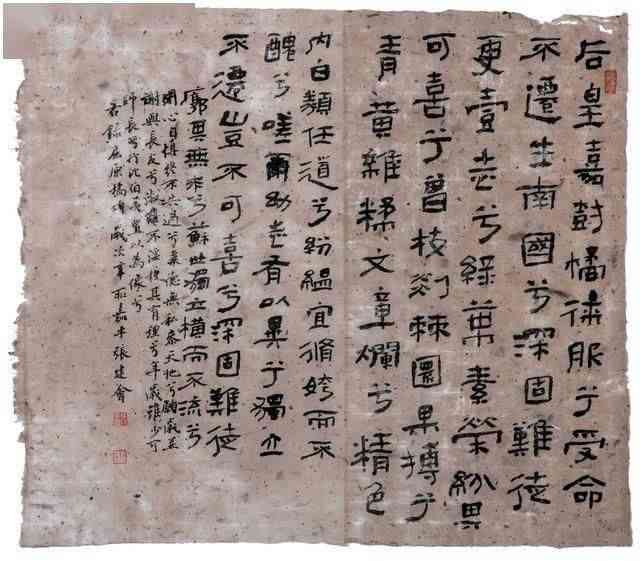 后皇嘉尌橘徠服兮受命
不遷生南國兮深固難徙
更壹志兮綠葉素榮紛其
可喜兮曾枝剡棘圜果摶兮
青黃雜糅文章爛兮精色
內白類任道兮紛緼宜脩姱而不
醜兮嗟爾幼志有以異兮獨立
不遷豈不可喜兮深固難徙
廓其無求兮蘇世獨立橫而不流兮
閉心自慎終不失過兮秉德無私參天地兮願歲并
謝與長友兮淑離不淫梗其有理兮年歲雖少可
師長兮行比伯夷置以為像兮
右錄屈原橘頌歲次辛丑嘉平張建會